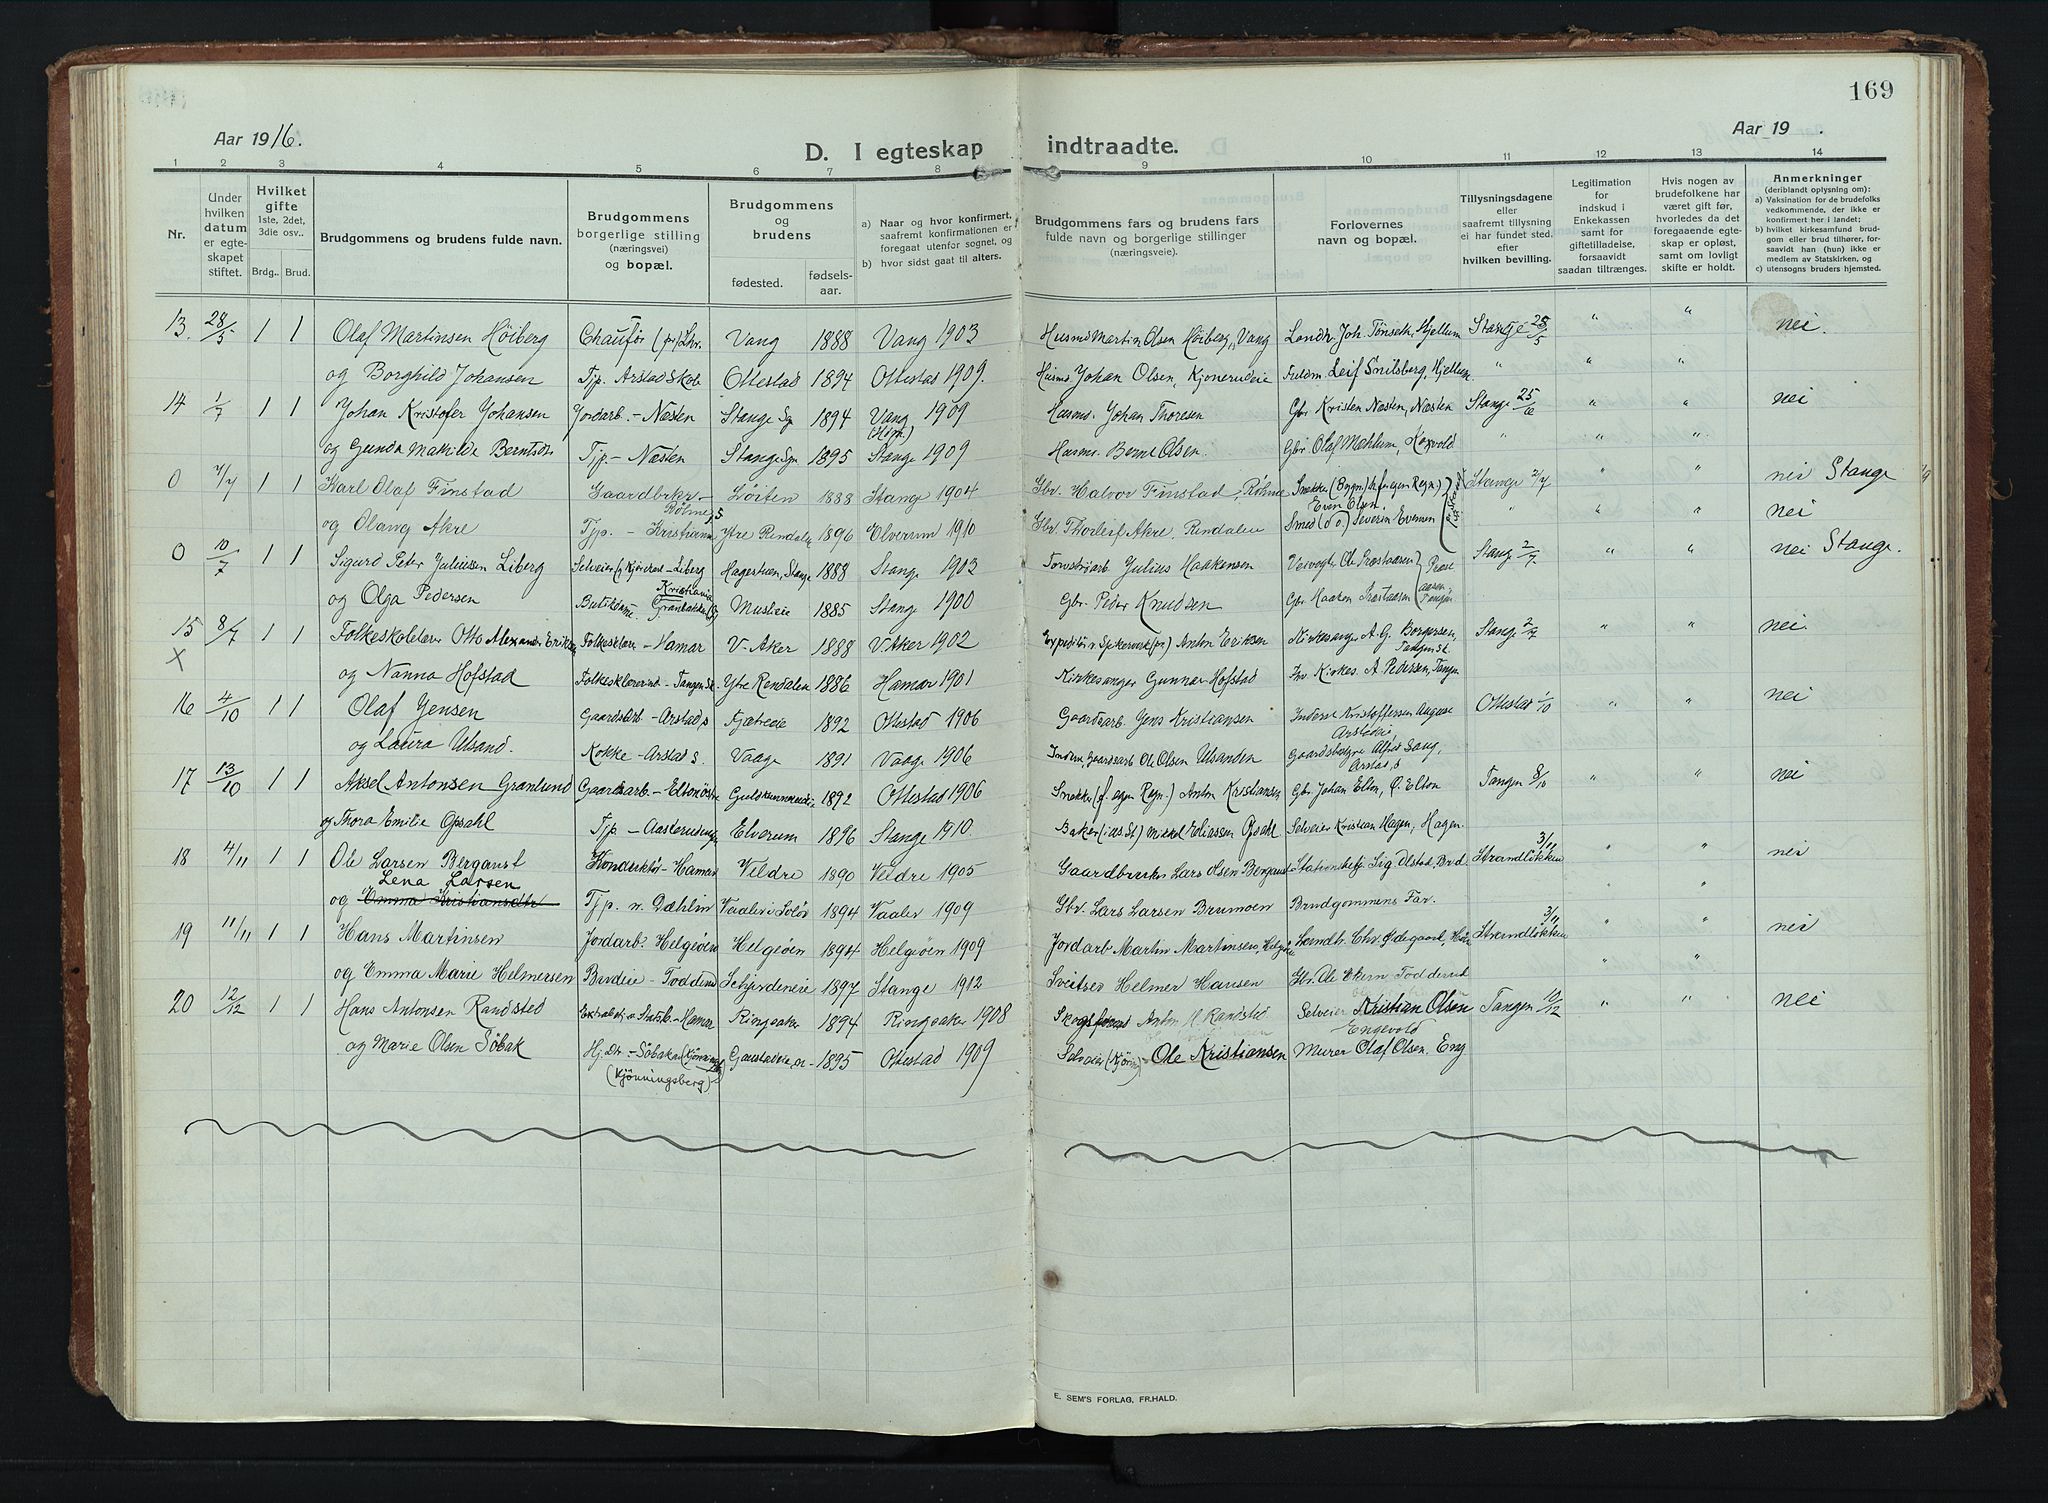 169
Aar 1916.
Aar 19 .
D. I egteskap indtraadte.
1 2 3 4 5 6 7 8 9 10 11 12 13 14
Nr.
Under hvilken datum er egteskapet stiftet.
Hvilket gifte 1ste, 2det, 3die osv..
Brdg.. Brud.
Brudgommens og brudens fulde navn.
Brudgommens borgerlige stilling (næringsvei) og bopæl.
Brudgommens og brudens
fødested. fødselsaar.
a) Naar og hvor konfirmert, saafremt konfirmationen er foregaat utenfor sognet, og
b) hvor sidst gaat til alters.
Brudgommens fars og brudens fars fulde navn og borgerlige stillinger (næringsveie).
Forlovernes navn og bopæl.
Tillysningsdagene eller saafremt tillysning ei har fundet sted, efter hvilken bevilling.
Legitimation for indskud i Enkekassen samt for giftetilladelse, forsaavidt saadan tiltrænges.
Hvis nogen av brudefolkene har været gift før, hvorledes da det foregaaende egteskap er opløst, samt om lovligt skifte er holdt.
Anmerkninger (deriblandt oplysning om): a) Vaksination for de brudefolks vedkommende, der ikke er konfirmert her i landet; b) hvilket kirkesamfund brudgom eller brud tilhører, forsaavidt han (hun) ikke er medlem av Statskirken, og c) utensogns bruders hjemsted.
13. 28/5 1 1 Olaf Martinsen Höiberg Chaufför Vang 1888 Vang 1903 Husmd Martin Olsen Höiberg, Vang Landh. Joh. Tönseth, Hjellum Stange 25/5 " " nei.
og Borghild Johansen Tjp. Arstad Skole Ottestad 1894 Ottestad 1909. Husms. Johan Olsen, Kjonerudeie Fuldm Leif Snilsberg, Hjellum. " " "
14 1/7 1 1 Johan Kristofer Johansen Jordarb. - Næsten Stange 1894 Vang 1909 Husms. Johan Thoresen Gbr. Kristen Næsten, Næsten Stange 25/6 " " nei
og Gunda Mathilde Berntsdtr Tjp. - Næsten Stange 1895 Stange 1909 Husms. Bernt Olsen. Gbr. Olaf Mæhlum, Koxvold " " "
0 7/7 1 1 Karl Olaf Finstad Gaardbrkr - Röhne, S Löiten 1888 Stange 1904 Gbr. Halvor Finstad, Röhne Snekker (Bygn.) Even Olsen Stange 2/7 " " nei Stange
og Olang Akre Tjp. - Kristiania Ytre Rendalen 1896 Elverum 1910 Gbr. Thorleif Akre, Rendalen Smed (do) Severin Evensen " " " nei
0 10/7 1 1 Sigurd Peter Juliussen Liberg Selveier - Liberg Hagestuen, Stange 1888 Stange 1903 Julius Haakensen Veivogter Ole Præstaasen Stange 2/7 " " nei Stange.
og Olga Pedersen Kristiania Musteie 1885 Stange 1900 Gbr. Peder Knudsen Gbr Haaken Præstaasen
15 8/7 1 1 Folkeskolelærer Otto Alexander Eriksen Folkesklærer - Hamar V-Aker 1888 V-Aker 1902 Anton Eriksen Kirkesanger A. G. Borgersen, Tangen St. Stange 2/7 " " nei.
X og Nanna Hofstad Folkesklærerinde - Tangen Sk. Ytre Rendalen 1886 Hamar 1901 Kirkesanger Gunnar Hofstad Kirkes. A Pedersen, Tangen " "
16 4/10 1 1 Olaf Jensen Gaardsarb - Arstad, s 1892 Ottestad 1906 Gaardsarb. Jens Kristiansen Inderst Kristoffersen August Arstadeie, Ottestad 1/10 " " nei
og Laura Ulsand. Kokke - Arstad s. Vaage 1891 Vaage 1906 Inderst, Gaardsarb Ole Olsen Ulsanden Alfred Saug, Arstad, s
17 13/10 1 1 Aksel Antonsen Granlund Gaardsarb - Elton 1892 Ottestad 1906 Snekker (f. egen Regn.) Anton Kristiansen Gbr. Johan Elton, Ö. Elton Tangen 8/10 " " nei
og Thora Emilie Opsahl Tjp - Elverum 1896 Stange 1910. Baker Mikkel Eliassen Opsahl Selveier Kristian Hagen, Hagen.
18 4/11 1 1 Ole Larsen Bergaust Konduktör - Hamar Veldre 1890 Veldre 1905 Gaardbruker Lars Olsen Bergaust Sig. Olstad, Brd. Strandlökken 3/11 " " nei
Lena Larsen
og Emma Kristiansdtr Tjp. n. Dæhlin Vaaler i Solör 1894 Vaaler 1909 Gbr. Lars Larsen Brumoen Brudgommens Far. " "
19 11/11 1 1 Hans Martinsen Jordarb. Helgeöen Helgeöen 1894 Helgeöen 1909 Jordarb Martin Martinsen, Helgöen Landh. Chr. Ödegaard, Strandlökken 3/11 " " nei
og Emma Marie Helmersen Budeie - Toddrud 1897 Stange 1912 Sveitser Helmer Hansen Gbr. Ole Ekern Todderud " "
20 12/12 1 1 Hans Antonsen Randsted Hamar Ringsaker 1894 Ringsaker 1908 Anton H. Randsted Selveier Kristian Olsen Engevold Tangen 10/12 " " nei
og Marie Olsen Söbak Hj. Dtr - Söbak (Kjönningsberg) 1895 Ottestad 1909 Selveier Ole Kristiansen Murer Olaf Olsen, Eng
E. SEM'S FORLAG, FR.HALD.